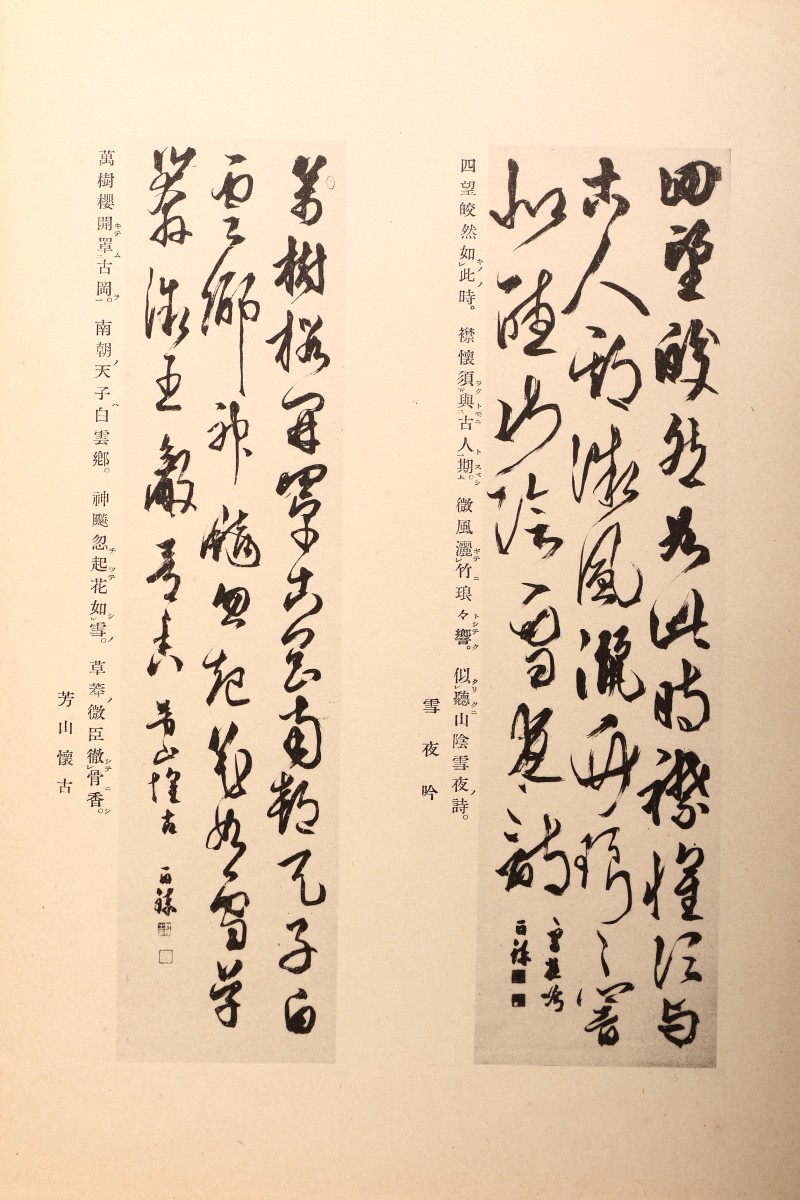 四望皎然如此時襟懷須与
古人期微風灑竹琅々響
似聴山陰雪夜詩
雪夜吟
百錬
四望皎然如レ此時。襟懷須下與二古人一期上。微風灑レ竹琅々響。似レ聽山陰雪夜詩。
雪夜吟
萬樹櫻開罩古岡南朝天子白
雲郷神飈忽起花如雪草
莽微臣徹骨香
芳山懐古
百錬
萬樹櫻開罩二古岡一。南朝天子白雲鄕。神飈忽起花如レ雪。草莽微臣徹レ骨香。
芳山懷古